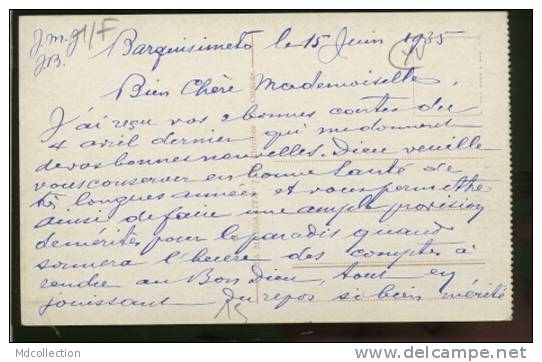 J.M.J/F
J.B.
Barquisimeto le 15 Juin 1935
Bien Chère Mademoiselle,
J'ai reçu vos 2 bonnes cartes du
4 avril dernier qui me donnent
de vos bonnes nouvelles. Dieu veuille
vous conserver en bonne santé de
très longues années et vous permettre
ainsi de faire une ample provision
de mérites pour le paradis quand
sonnera l'heure des comptes à
rendre au Bon Dieu, tout en
jouissant du repos si bien mérité
15
MDcollection
http://www.delcampe.net